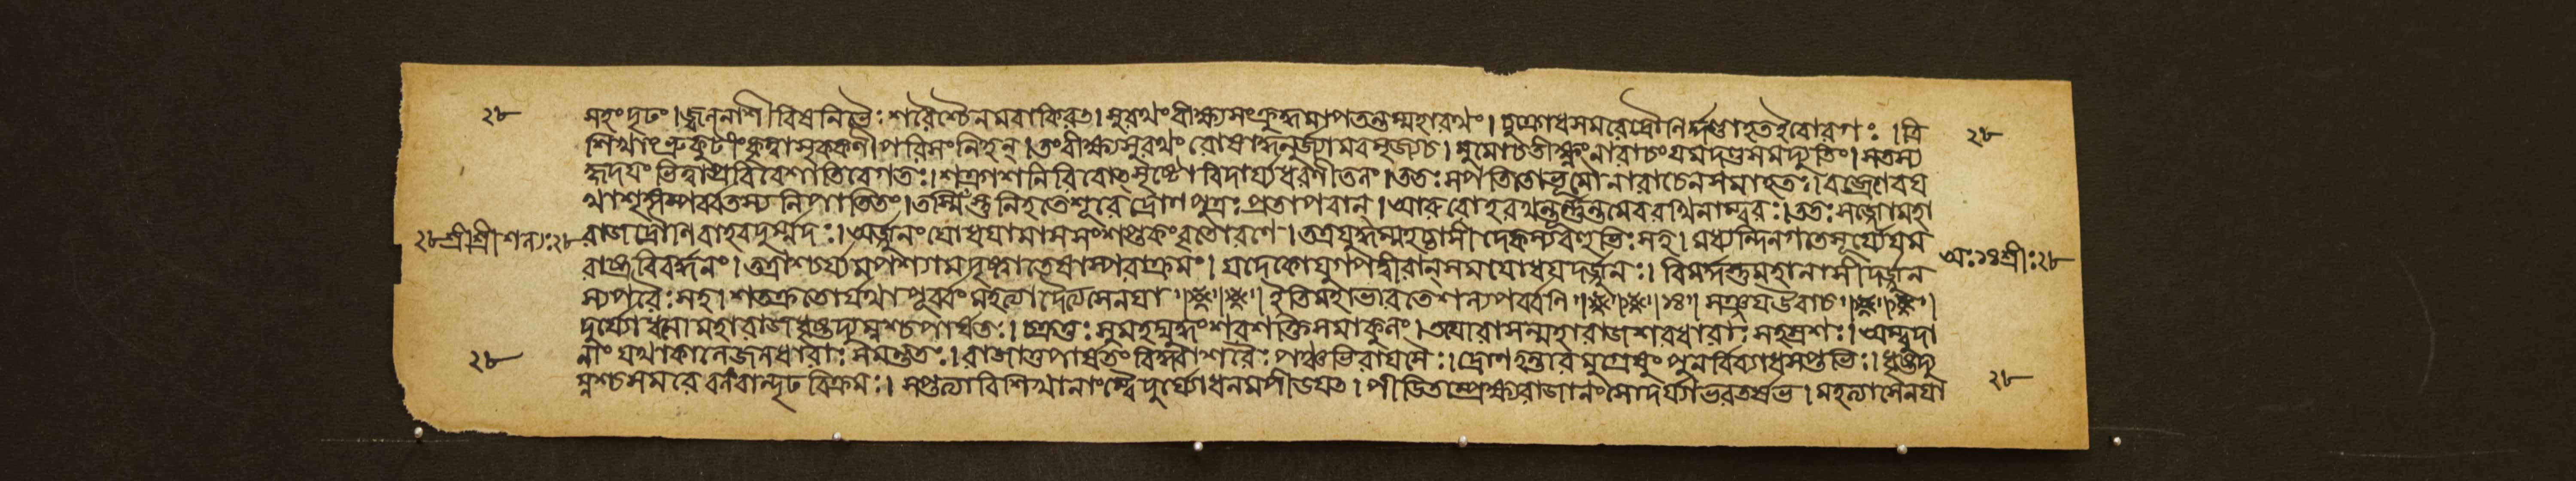 ২৮
মহংদৃঢং। জ্বলনাশীবিষনিভৈঃ শরৈশ্চৈনমবাকিরৎ। সুরথংবীক্ষ্যসংক্রুদ্ধমাপতন্তম্মহারথং। চুক্রোধসমরেদ্রৌনির্দ্দণ্ডাহতইবোরগঃ। ত্রি
২৮
শিখাংভ্রুকুটীংকৃত্বাসৃক্কণীপরিসংলিহন্। তংবীক্ষ্যসুরথং রোষাদ্ধনুর্জ্যামবমৃজ্যচ। মুমোচতীক্ষ্ণংনারাচংযমদণ্ডসমদ্যুতিং। সতস্য
হৃদযংভিত্বাপ্রবিবেশাতিবেগতঃ। শক্রাশনিরিবোৎসৃষ্টোবিদার্য্যধরণীতলং। ততঃ সপতিতোভূমৌনারাচেনসমাহতঃ। বজ্রেণেবয
থাশৃঙ্গম্পর্ব্বতস্যনিপাতিতং। তস্মিংস্তুনিহতেশূরেদ্রোণপুত্রঃ প্রতাপবান্। আরুরোহরথন্তূর্ণন্তমেবরথিনাম্বরঃ। ততঃ সজ্জোমহা
২৮শ্রীশ্রীশল্যঃ২৮
রাজদ্রৌণিরাহবদুর্ম্মদঃ। অর্জ্জুনংযোধযামাসসংশপ্তকবৃতোরণে। তত্রযুদ্ধম্মহচ্চাসীদেকস্যবহুভিঃ সহ। মধ্যন্দিনগতেসূর্য্যেযম
অঃ১৪শ্রীঃ২৮
রাষ্ট্রবিবর্দ্ধনং। তত্রাশ্চর্য্যমপশ্যামদৃষ্ট্বাতেষাম্পরাক্রমং। যদেকোযুগপদ্বীরান্সমযোধযদর্জ্জুনঃ। বিমর্দ্দস্তুমহানাসীদর্জ্জুন
স্যপরৈঃ সহ। শতক্রতোর্যথাপূর্ব্বংমহত্যাদৈত্যসেনযা॥ ইতিমহাভারতেশল্যপর্ব্বণি॥১৪॥ সঞ্জযউবাচ॥
দুর্য্যোধনোমহারাজধৃষ্টদ্যুম্নশ্চপার্ষতঃ। চক্রতুঃ সুমহদ্যুদ্ধংশরশক্তিসমাকুলং। তযোরাসন্মহারাজশরধারাঃ সহস্রশঃ। অম্বুদা
২৮
নাংযথাকালেজলধারাঃ সমন্ততঃ। রাজাতুপার্ষতংবিদ্ধ্বাশরৈঃ পঞ্চভিরাযসৈঃ। দ্রোণহন্তারমুগ্রেষুংপুনর্বিব্যাধসপ্তভিঃ। ধৃষ্টদ্যু
ম্নশ্চসমরেবলবান্দৃঢবিক্রমঃ। সপ্তত্যাবিশিখানাংম্বৈদুর্য্যোধনমপীডযৎ। পীডিতম্প্রেক্ষ্যরাজানংসোদর্য্যাভরতর্ষভ। মহত্যাসেনযা
২৮